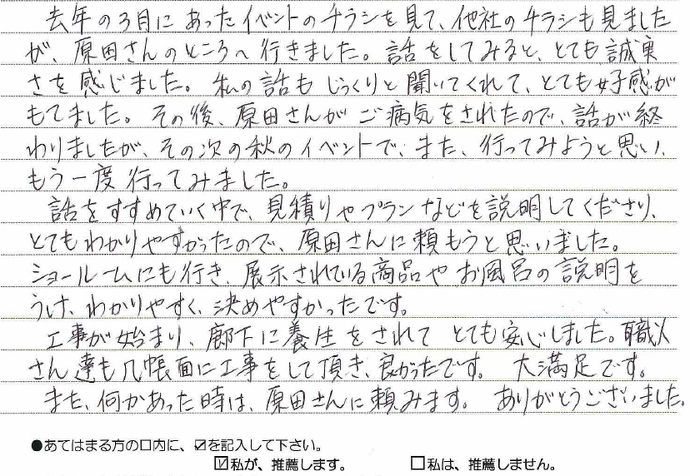 去年の3月にあったイベントのチラシを見て、他社のチラシも見ました
が、原田さんのところへ行きました。話をしてみると、とても誠実
さを感じました。私の話もじっくりと聞いてくれて、とても好感が
もてました。その後、原田さんがご病気をされたので、話が終
わりましたが、その次の秋のイベントで、また、行ってみようと思い、
もう一度行ってみました。
話をすすめていく中で、見積りやプランなどを説明してくださり、
とてもわかりやすかったので、原田さんに頼もうと思いました。
ショールームにも行き、展示されている商品やお風呂の説明を
うけ、わかりやすく、決めやすかったです。
工事が始まり、廊下に養生をされてとても安心しました。職人
さん達も几帳面に工事をして頂き、良かったです。大満足です。
また、何かあった時は、原田さんに頼みます。ありがとうございました。
●あてはまる方の口内に、☑を記入して下さい。
☑私が、推薦します。 □私は、推薦しません。